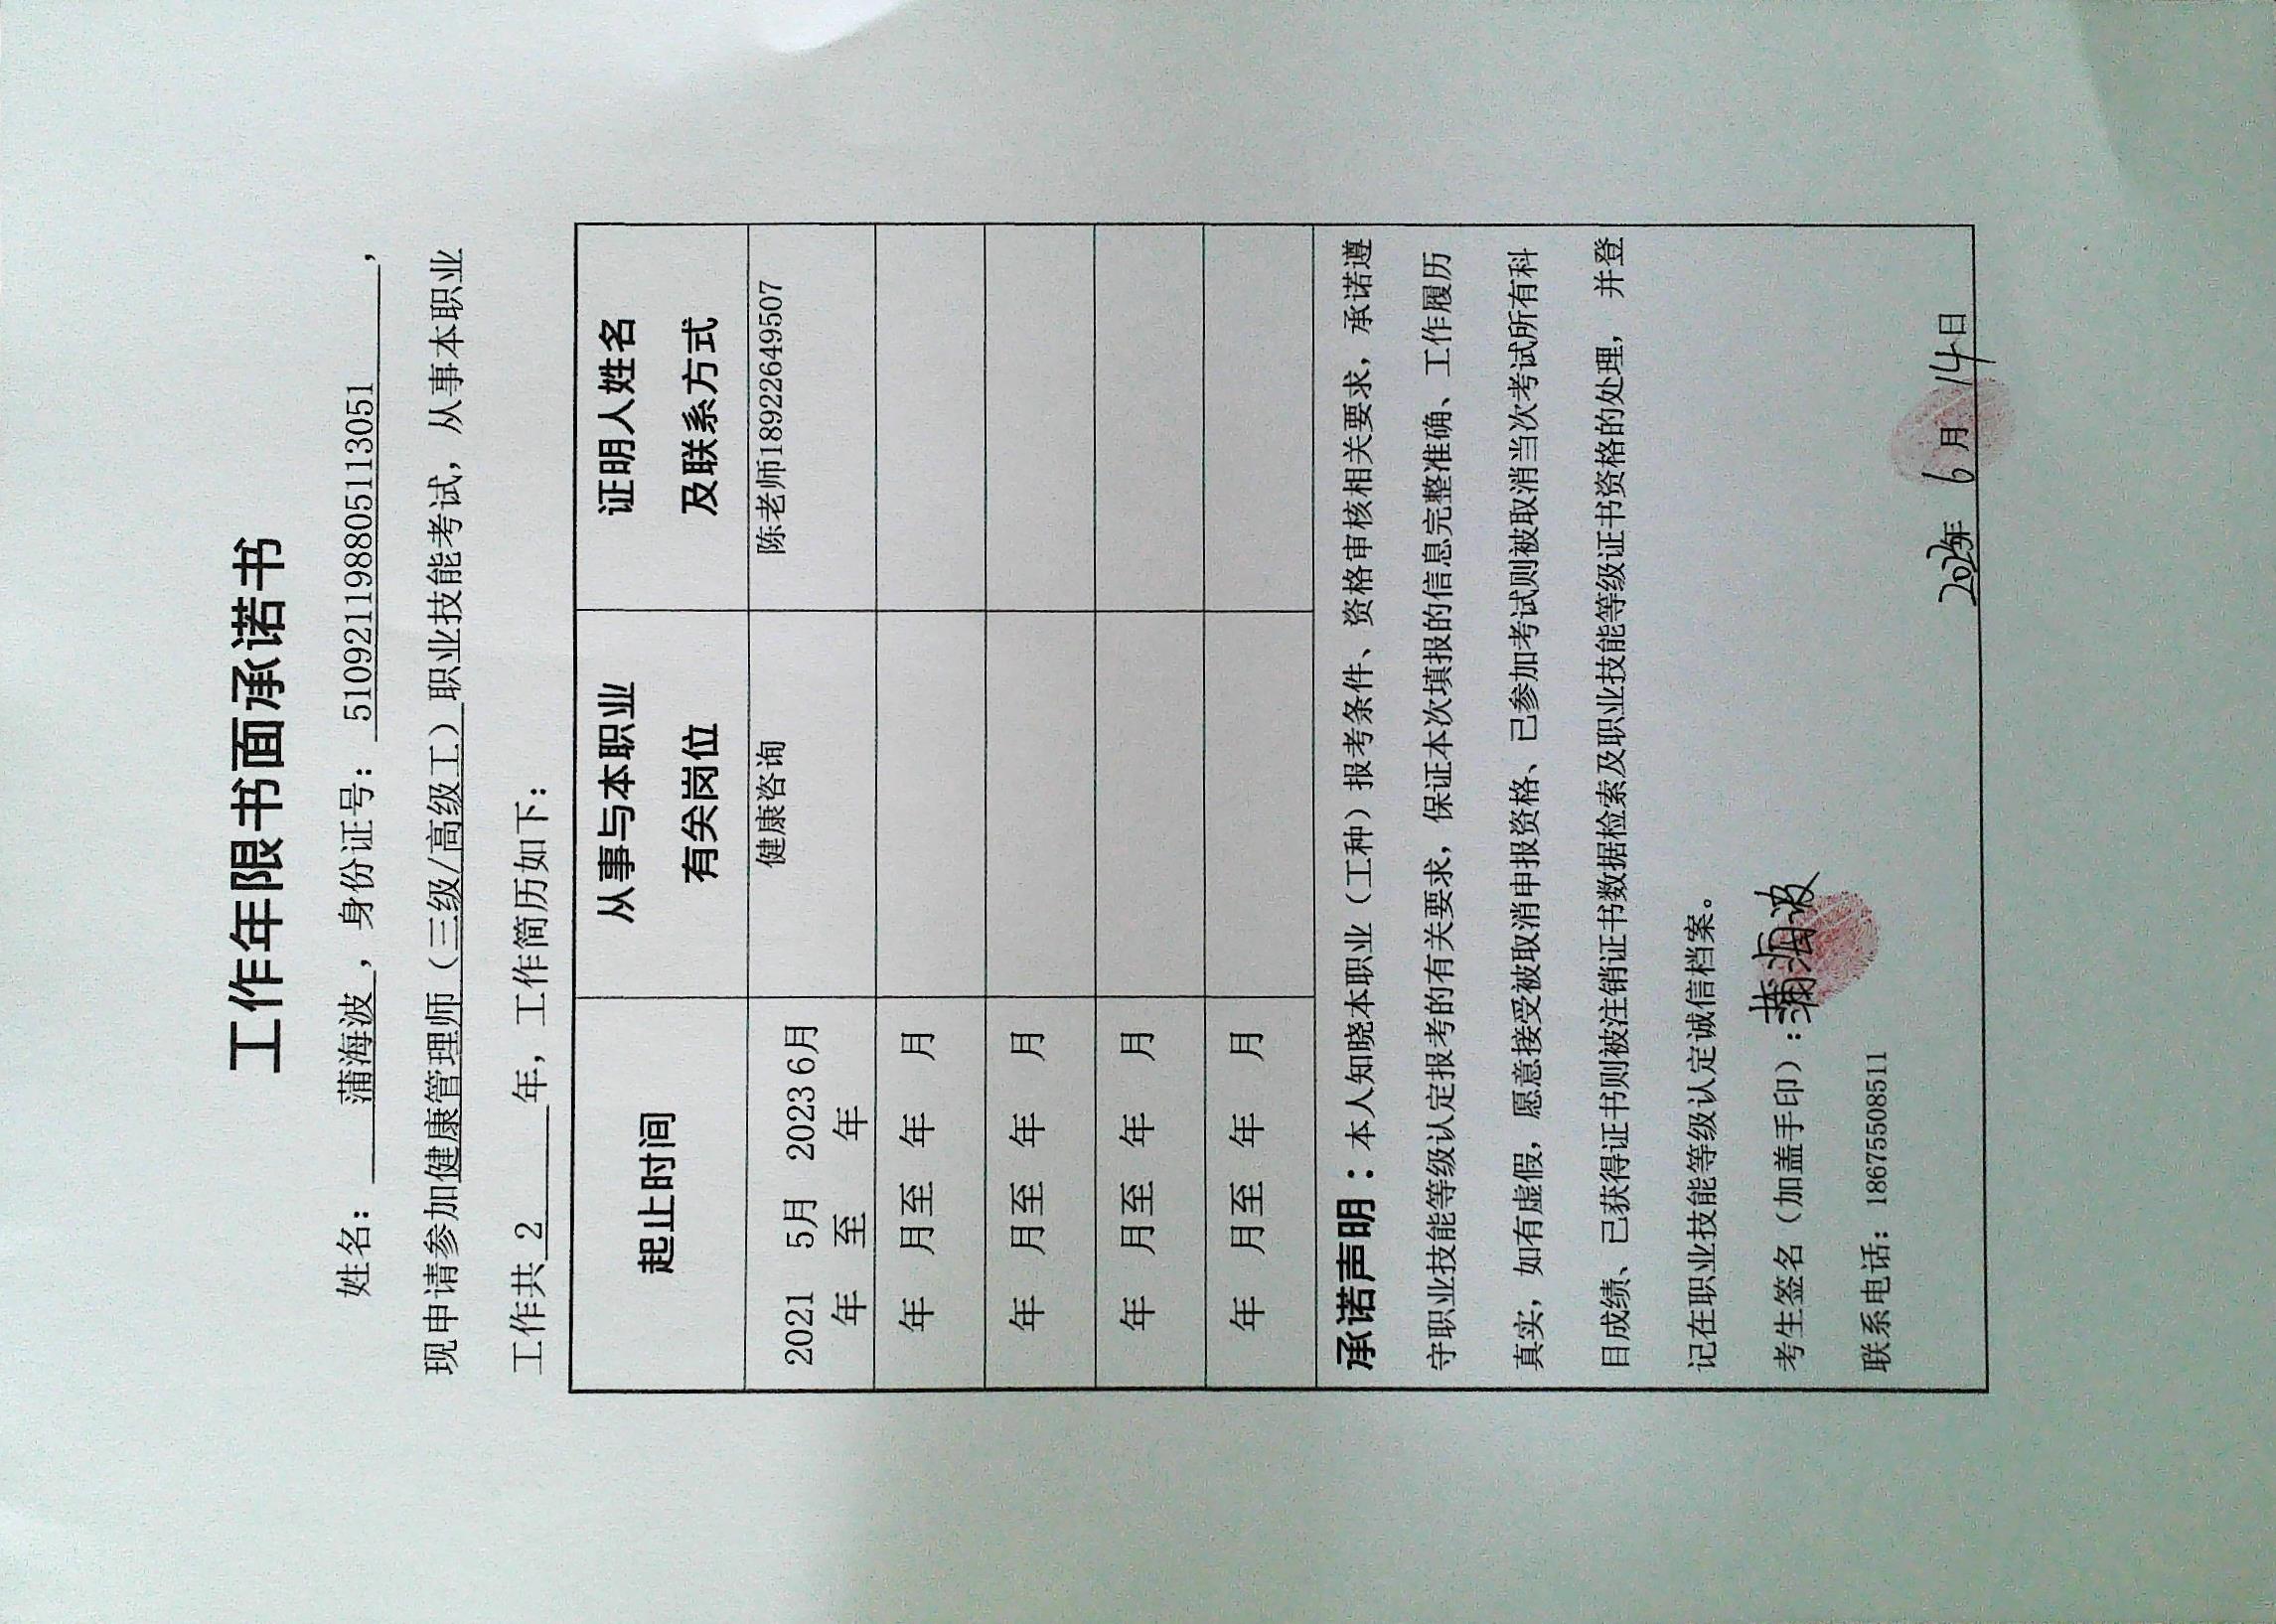 工作年限书面承诺书
姓名： 蒲海波 ，身份证号： 510921198805113051 ，
现申请参加健康管理师（三级/高级工）职业技能考试，从事本职业
工作共 2 年，工作简历如下：
起止时间 从事与本职业有关岗位 证明人姓名及联系方式
2021 5月 2023 6月 健康咨询 陈老师18922649507
年 至 年
年 月至 年 月
年 月至 年 月
年 月至 年 月
年 月至 年 月
承诺声明：本人知晓本职业（工种）报考条件、资格审核相关要求，承诺遵
守职业技能等级认定报考的有关要求，保证本次填报的信息完整准确、工作履历
真实，如有虚假，愿意接受被取消申报资格、已参加考试则被取消当次考试所有科
目成绩、已获得证书则被注销证书数据检索及职业技能等级证书资格的处理， 并登
记在职业技能等级认定诚信档案。
考生签名（加盖手印）：蒲海波
联系电话：18675508511
年 6 月 14 日